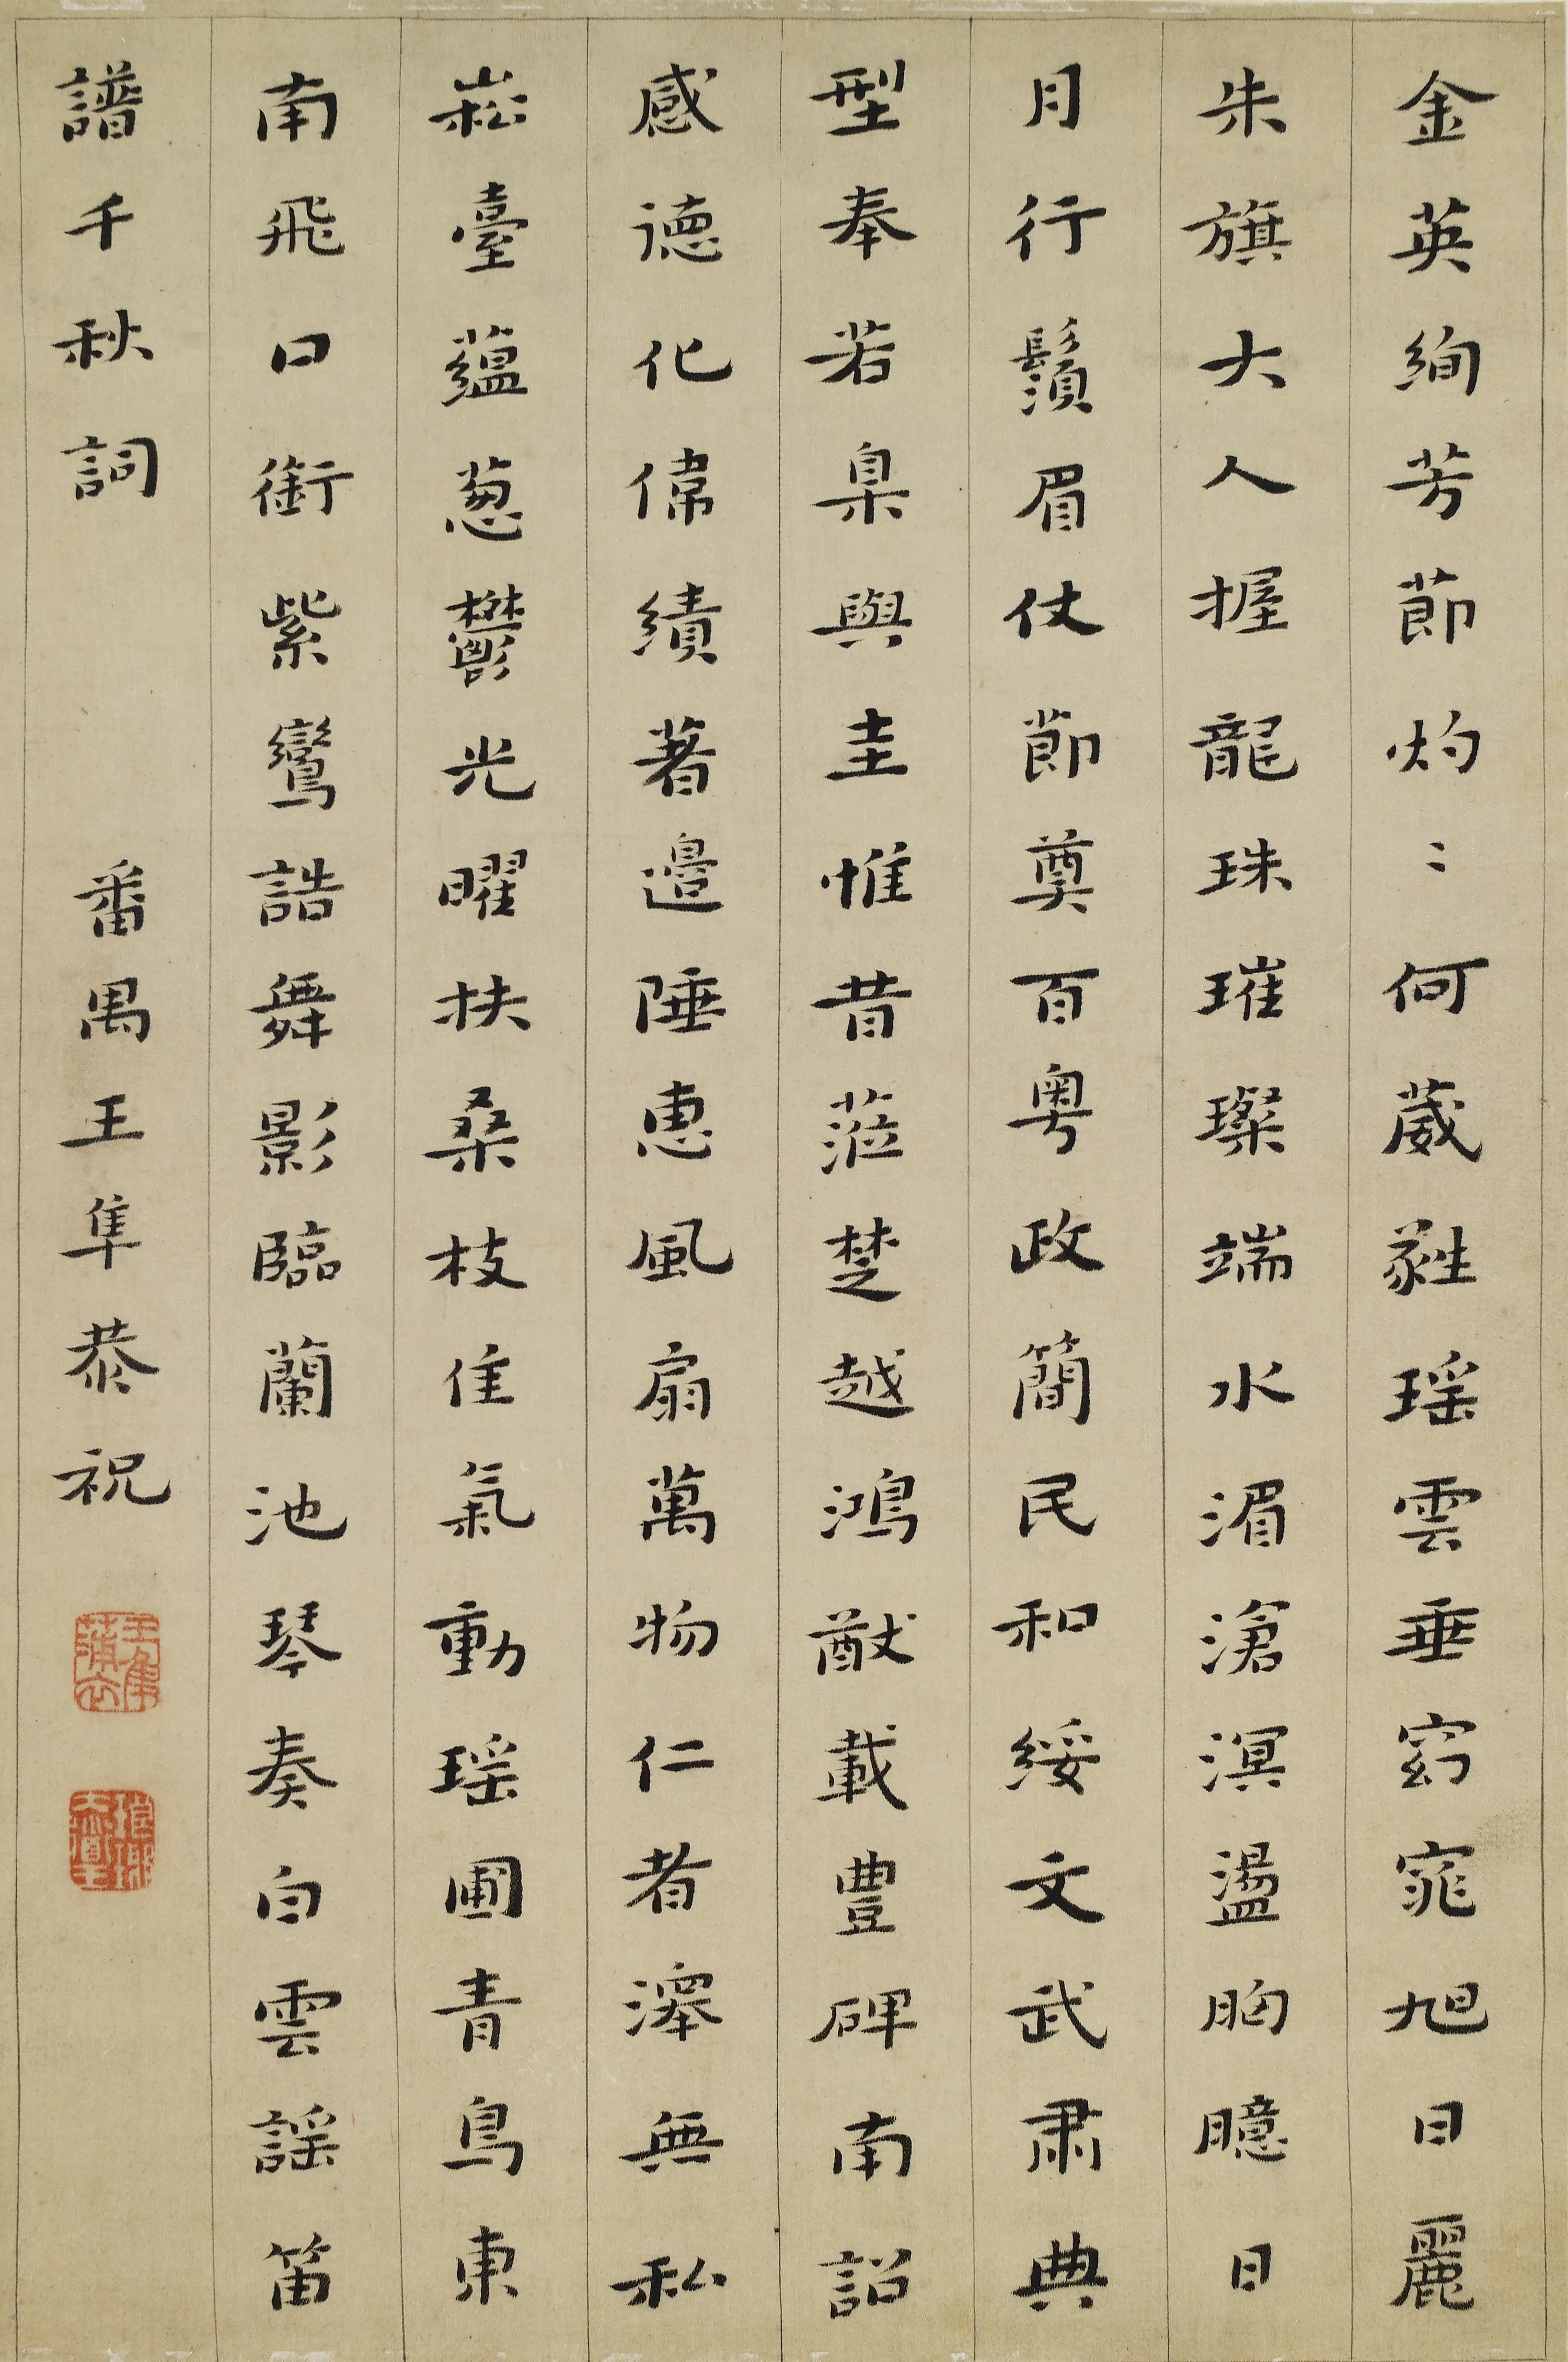 金英絢芳節灼〻何葳蕤瑶雲垂窈窕旭日麗
朱旗大人握龍珠璀璨端水湄滄溟盪胸臆日
月行鬚眉仗節奠百粵政簡民和綏文武肅典
型奉若臬與圭惟昔蒞楚越鴻猷載豐碑南詔
感德化偉績著邊陲惠風扇萬物仁者澤無私
崧臺蘊蔥鬱光曜扶桑枝佳氣動瑶圃青鳥東
南飛口銜紫鸞誥舞影臨蘭池琴奏白雲謡笛
譜千秋詞
番禺王隼恭祝
王隼蒲衣